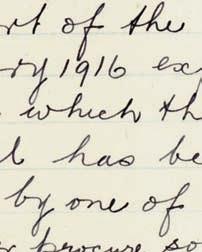 rt of the
ry 1916 ex
which th
l has be
by one of
procure so